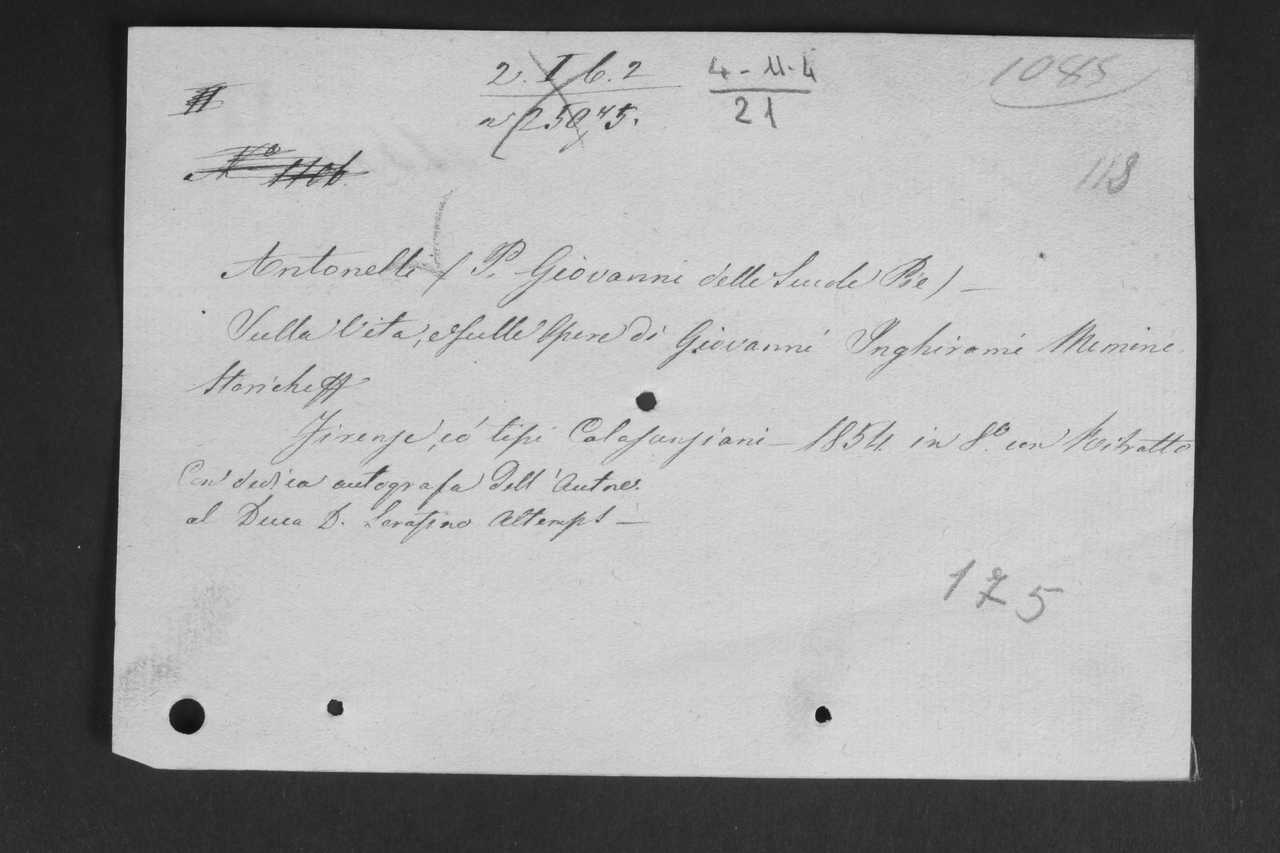 2. I b. 2
4-11-4
1085
n 25075.
21
No 1106
118
Antonelli (P. Giovanni delle Scuole Pie) —
Sulla Vita, e sulle Opere di Giovanni Inghirami Memorie
Storiche
Firenze, co' tipi Calasanziani — 1854 in 8.o con Ritratto
Con dedica autografa dell'Autore
al Duca D. Serafino Altemps —
175